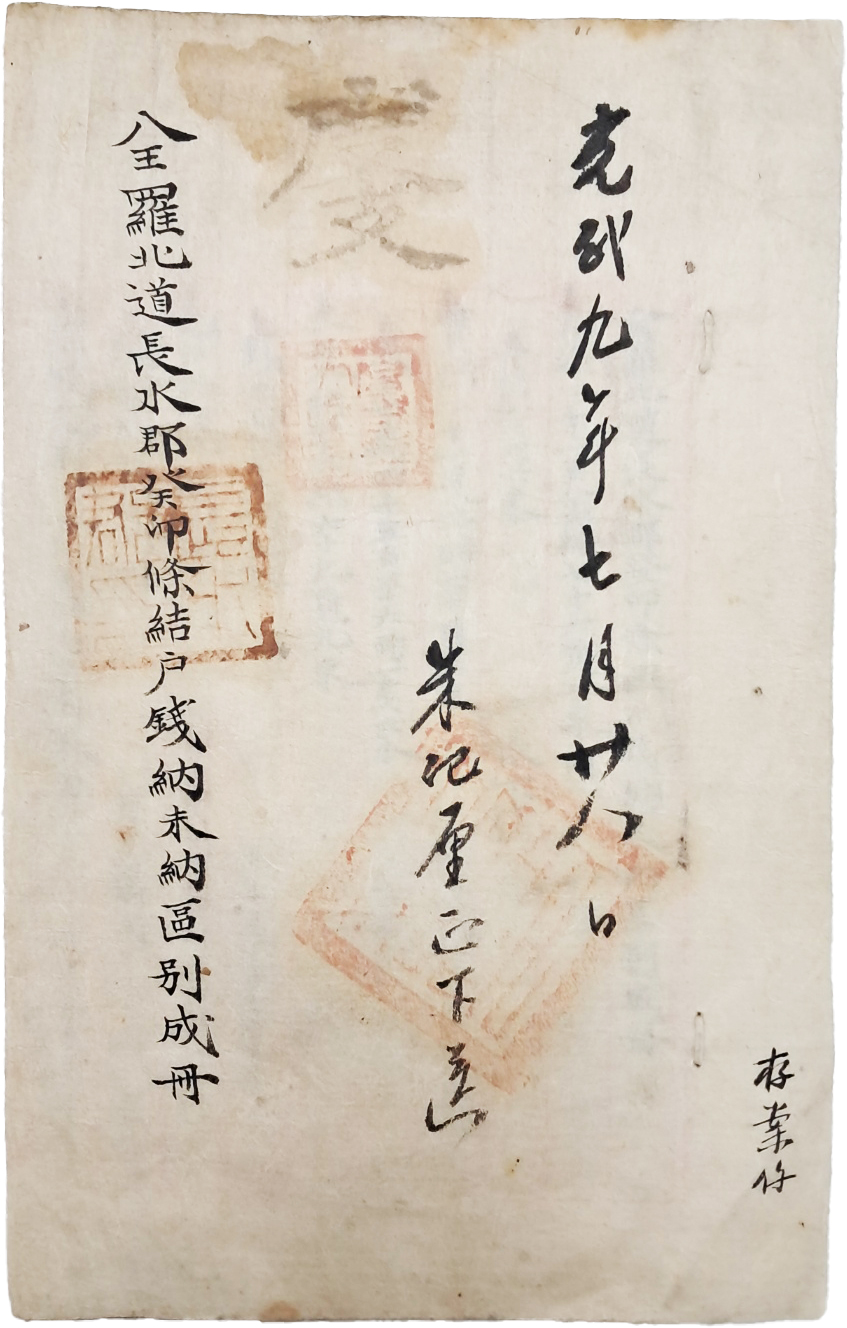 存案件
光武九年七月廿八日
朱記厘正下送
全羅北道長水郡癸卯條結户錢納未納區別成冊